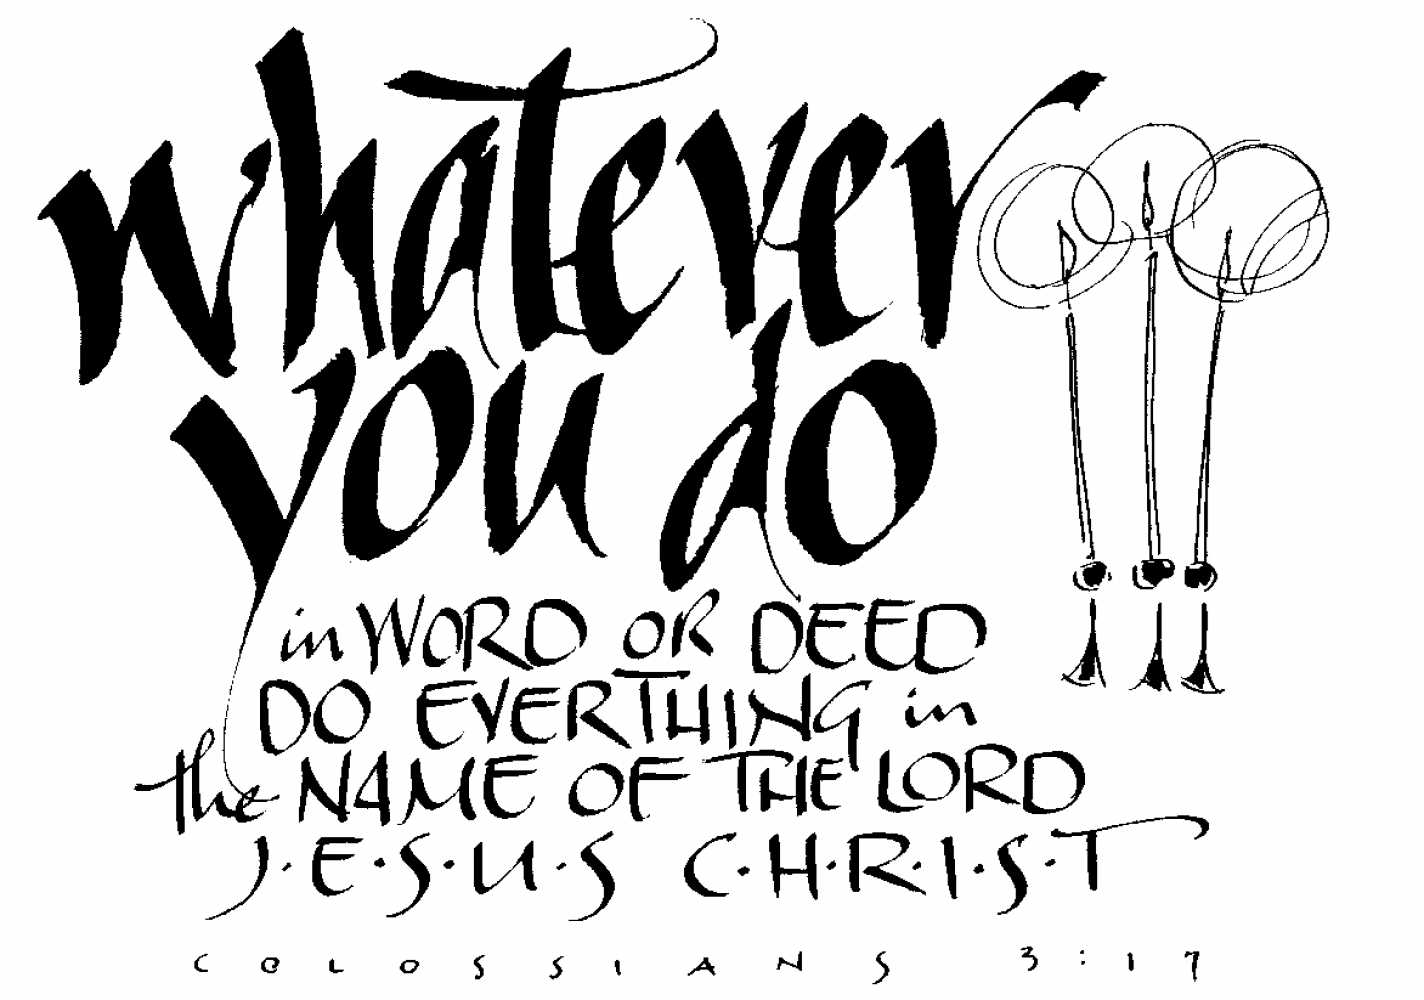 whatever
you do
in WORD OR DEED
DO EVERTHING in
the NAME OF THE LORD
J·E·S·U·S C·H·R·I·S·T
COLOSSIANS 3:17